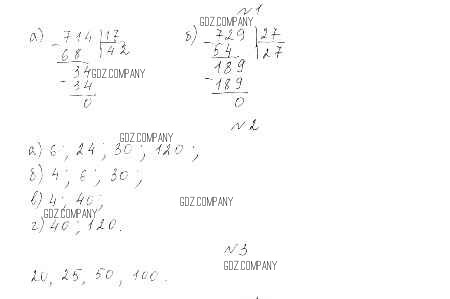 N1
GDZ.COMPANY
а) 714 |17
- 68 42
34 GDZ.COMPANY
- 34
0
б) 729 |27
- 54 27
189
- 189
0
N2
GDZ.COMPANY
а) 6; 24; 30; 120;
б) 4; 6; 30;
в) 4; 40;
GDZ.COMPANY
GDZ.COMPANY
г) 40; 120.
N3
GDZ.COMPANY
20, 25, 50, 100.